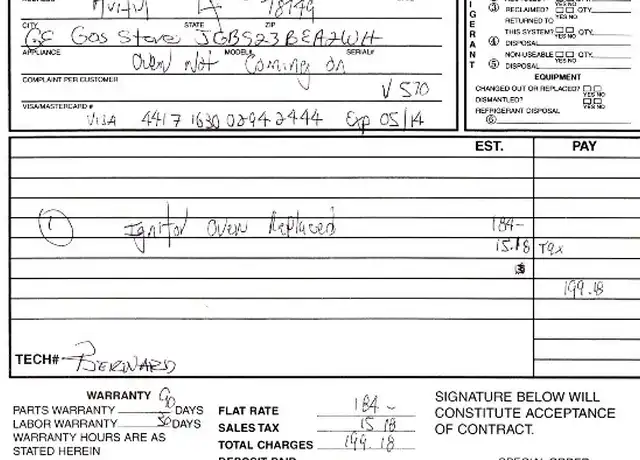 CITY STATE ZIP
GE Gas Stove JGBS23BEA2WH
APPLIANCE MODEL# SERIAL#
Oven not Coming on
COMPLAINT PER CUSTOMER
V 570
VISA/MASTERCARD #
VISA 4417 1630 02942444 Exp 05/14
③ RECLAIMED? YES NO QTY.
RETURNED TO
THIS SYSTEM? YES NO QTY.
④ DISPOSAL
NON-USEABLE YES NO QTY.
⑤ DISPOSAL
EQUIPMENT
CHANGED OUT OR REPLACED? YES NO
DISMANTLED? YES NO
REFRIGERANT DISPOSAL
⑥
EST. PAY
① Ignitor Oven Replaced 184-
15.18 Tax
199.18
TECH# BERNARD
WARRANTY 90
PARTS WARRANTY DAYS
LABOR WARRANTY 30 DAYS
WARRANTY HOURS ARE AS
STATED HEREIN
FLAT RATE 184-
SALES TAX 15 18
TOTAL CHARGES 199.18
DEPOSIT PAID
SIGNATURE BELOW WILL
CONSTITUTE ACCEPTANCE
OF CONTRACT.
SPECIAL ORDER